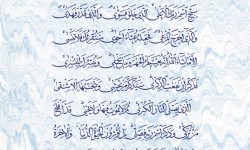 سبح اسم ربك الأعلى الذي خلق فسوى والذي قدر فهدى
والذي أخرج المرعى فجعله غثاء أحوى سنقرئك فلا تنسى
إلا ما شاء الله إنه يعلم الجهر وما يخفى ونيسرك لليسرى
فذكر إن نفعت الذكرى سيذكر من يخشى ويتجنبها الأشقى
الذي يصلى النار الكبرى ثم لا يموت فيها ولا يحيى قد أفلح
من تزكى وذكر اسم ربه فصلى بل تؤثرون الحياة الدنيا والآخرة